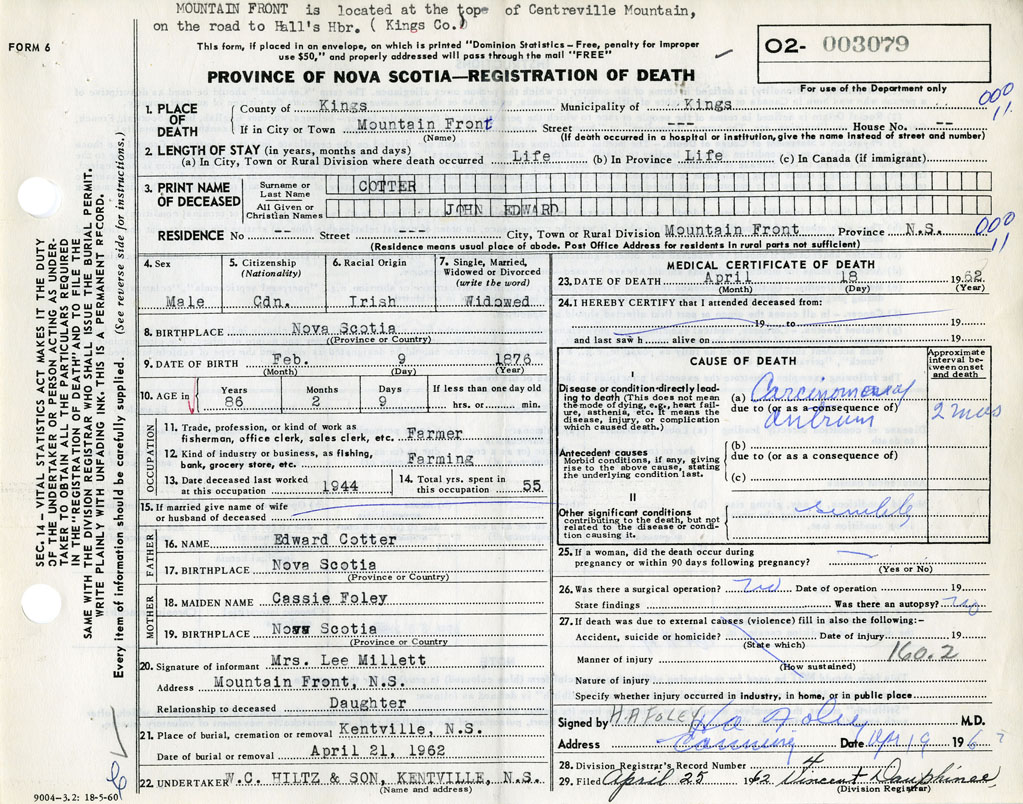 MOUNTAIN FRONT is located at the tope of Centreville Mountain,
on the road to Hall's Hbr. ( Kings Co.)
FORM 6
This form, if placed in an envelope, on which is printed "Dominion Statistics – Free, penalty for improper
use $50," and properly addressed will pass through the mail "FREE"
O2- 003079
For use of the Department only
PROVINCE OF NOVA SCOTIA—REGISTRATION OF DEATH
1. PLACE OF DEATH
County of Kings Municipality of Kings
000
11
If in City or Town Mountain Front Street -- House No. --
(Name) (If death occurred in a hospital or institution, give the name instead of street and number)
2. LENGTH OF STAY (in years, months and days)
(a) In City, Town or Rural Division where death occurred Life (b) In Province Life (c) In Canada (if immigrant)
3. PRINT NAME OF DECEASED
Surname or Last Name COTTER
All Given or Christian Names JOHN EDWARD
RESIDENCE No -- Street --- City, Town or Rural Division Mountain Front Province N.S.
000
11
(Residence means usual place of abode. Post Office Address for residents in rural parts not sufficient)
4. Sex
Male
5. Citizenship
(Nationality)
Cdn.
6. Racial Origin
Irish
7. Single, Married, Widowed or Divorced
(write the word)
Widowed
8. BIRTHPLACE Nova Scotia
((Province or Country)
9. DATE OF BIRTH Feb. 9 1876
(Month) (Day) (Year)
10. AGE in
Years Months Days If less than one day old
86 2 9 hrs. or min.
OCCUPATION
11. Trade, profession, or kind of work as
fisherman, office clerk, sales clerk, etc. Farmer
12. Kind of industry or business, as fishing,
bank, grocery store, etc. Farming
13. Date deceased last worked
at this occupation 1944
14. Total yrs. spent in
this occupation 55
15. If married give name of wife
or husband of deceased
FATHER
16. NAME Edward Cotter
17. BIRTHPLACE Nova Scotia
(Province or Country)
MOTHER
18. MAIDEN NAME Cassie Foley
19. BIRTHPLACE Nova Scotia
(Province or Country
20. Signature of informant Mrs. Lee Millett
Address Mountain Front, N.S.
Relationship to deceased Daughter
21. Place of burial, cremation or removal Kentville, N.S.
Date of burial or removal April 21, 1962
22. UNDERTAKER W.C. HILTZ & SON, KENTVILLE, N.S.
(Name and address)
MEDICAL CERTIFICATE OF DEATH
23. DATE OF DEATH April 18 1962
(Month) (Day) (Year)
24. I HEREBY CERTIFY that I attended deceased from:
19 to 19
and last saw h alive on 19
CAUSE OF DEATH
Approximate interval between onset and death
I
Disease or condition directly leading to death (This does not mean the mode of dying, e.g., heart failure, asthenia, etc. It means the disease, injury, or complication which caused death.)
(a) Carcinoma
due to (or as a consequence of)
antrum
2 mos
Antecedent causes
Morbid conditions, if any, giving rise to the above cause, stating the underlying condition last.
(b)
due to (or as a consequence of)
(c)
II
Other significant conditions
contributing to the death, but not related to the disease or condition causing it.
25. If a woman, did the death occur during
pregnancy or within 90 days following pregnancy?
(Yes or No)
26. Was there a surgical operation? no Date of operation 19
State findings Was there an autopsy? no
27. If death was due to external causes (violence) fill in also the following:–
Accident, suicide or homicide? Date of injury 19
(State which)
160.2
Manner of injury
(How sustained)
Nature of injury
Specify whether injury occurred in industry, in home, or in public place
Signed by H.A FOLEY H A Foley M.D.
Address Canning Date Apr 19 196
28. Division Registrar's Record Number
29. Filed April 25 1962 Vincent Dauphinee
(Division Registrar)
SEC. 14 – VITAL STATISTICS ACT MAKES IT THE DUTY
OF THE UNDERTAKER OR PERSON ACTING AS UNDER-
TAKER TO OBTAIN ALL THE PARTICULARS REQUIRED
IN THE "REGISTRATION OF DEATH" AND TO FILE THE
SAME WITH THE DIVISION REGISTRAR WHO SHALL ISSUE THE BURIAL PERMIT.
WRITE PLAINLY WITH UNFADING INK. THIS IS A PERMANENT RECORD.
Every item of information should be carefully supplied. (See reverse side for instructions.)
9004–3.2: 18-5-60